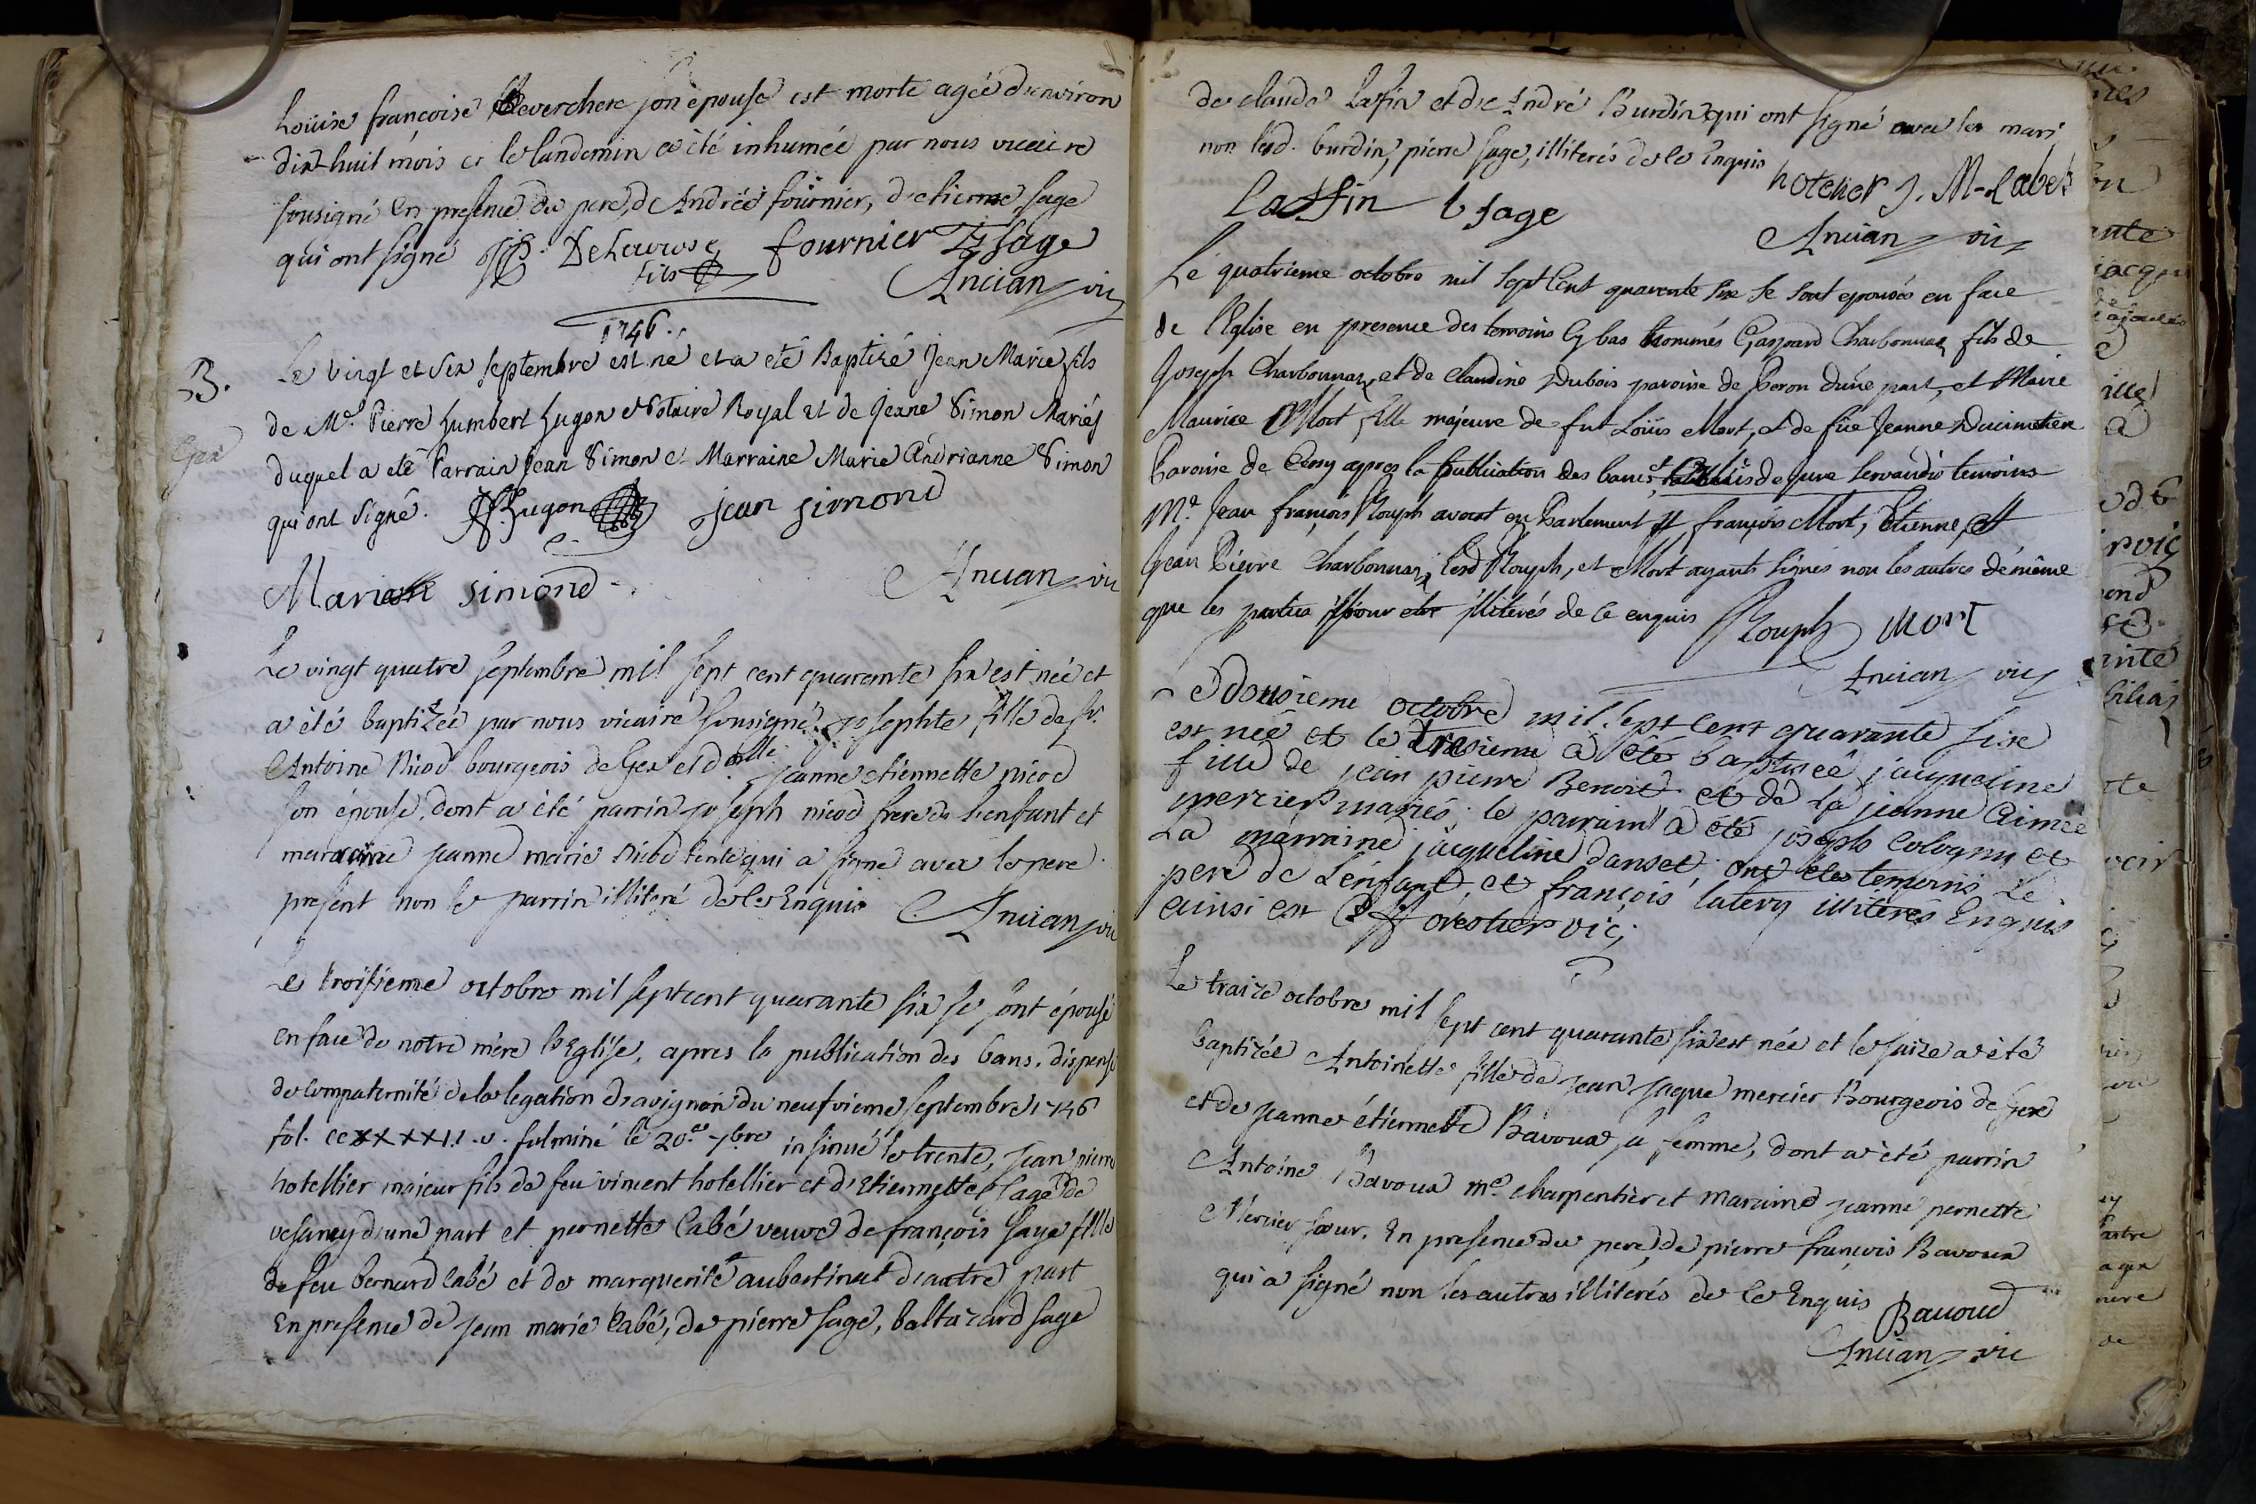 Loüise françoise Reverchere son epouse est morte agée d'environ
dix huit mois et le landemin a été inhumée par nous vicaire
sousigné en presence du pere, de André fournier, d'etienne sage
qui ont signé Delacrose fournier E sage
fils
Ancian vic
1746.
B.
Le vingt et six septembre est né et a eté Baptizé Jean Marie fils
de Me. Pierre humbert hugon Notaire Royal et de Jeane Simon Mariés
Gex
duquel a eté Parrain Jean Simon et Marraine Marie Andrianne Simon
qui ont signé. hugon jean simond
Ancian vic
Marie simond
Le vingt quatre septembre mil sept cent quarente six est née et
a été baptizée par nous vicaire sousigné josephte, fille de sr.
Antoine Nicod bourgeois de Gex et dlle. jeanne etiennette nicod
son épouse, dont a été parrin joseph nicod frere de l'enfant et
maraine jeanne marie nicod tente qui a signé avec le pere
present non le parrin illiteré de ce Enquis
Ancian vic
Le troisieme octobre mil sept cent quarante six se sont épousé
en face de notre mère l'Eglise, apres la publication des bans, dispense
de compaternité de la legation d'avignon du neufvieme septembre 1746
fol. CCXXXXII. v. fulminé le 20e 7bre insinué le trente, jean pierre
hotellier majeur fils de feu vincent hotellier et d'Etiennette sage de
vesancy d'une part et pernette Labé veuve de françois sage fille
de feu bernard labé et de marguerite aubertinat d'autre part
En presence de jean marie Labé, de pierre sage, baltazard sage
de claude Laffin et de André Burdin qui ont signé avec le mari
non led. burdin, pierre sage, illiterés de ce Enquis
hotelier J. M. Labet
Laffin b sage
Ancian vic
Le quatrieme octobre mil sept Cent quarente six se sont epousés en face
de l'Eglise en presence des temoins Cy bas nommés Gaspard Charbonnaz fils de
Joseph Charbonnaz et de Claudine Dubois paroise de Peron d'une part, et Marie
Maurise Mort fille majeure de fut Loüis Mort, et de füe Jeanne Ducimetiere
Paroise de Cessy appres la publication des bancs, de jure servandis temoins
Me. Jean françois Rouph avocat en Parlement françois Mort, Etienne, et
Jean Pierre Charbonnaz, lesd Rouph, et Mort ayants signés non les autres de même
que les parties pour etre illiterés de ce enquis
Rouph Mort
Ancian vic
Le dousieme octobre mil sept cent quarante sixe
est née et le traisieme a eté baptiseé jaqueline
fille de jean pierre Benoit et de La jeanne Aimée
mercier mariés; le parrain a été joseph Cologny et
La marraine jaqueline danset; ont étes temoins Le
pere de L'enfant, et françois Latery illiterés Enquis
ainsi est forestier vic;
Le traize octobre mil sept cent quarante six est née et le saize a été
baptizée Antoinette fille de jean jaque mercier Bourgeois de Gex
et de jeanne étiennette Bavoux sa femme, dont a été parrin
Antoine Bavoux me. charpentier et maraine jeanne pernette
Mercier sœur. En presence du pere, de pierre françois Bavoux
qui a signé non les autres illiterés de ce Enquis
Bauoud
Ancian vic